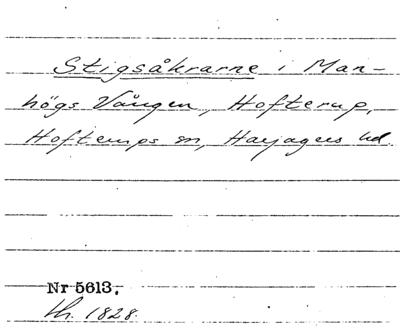 Stigsåkrarne i Man-
högs Vången, Hofterup,
Hofterups sn, Harjagers hd.
Nr 5613.
lh. 1828.